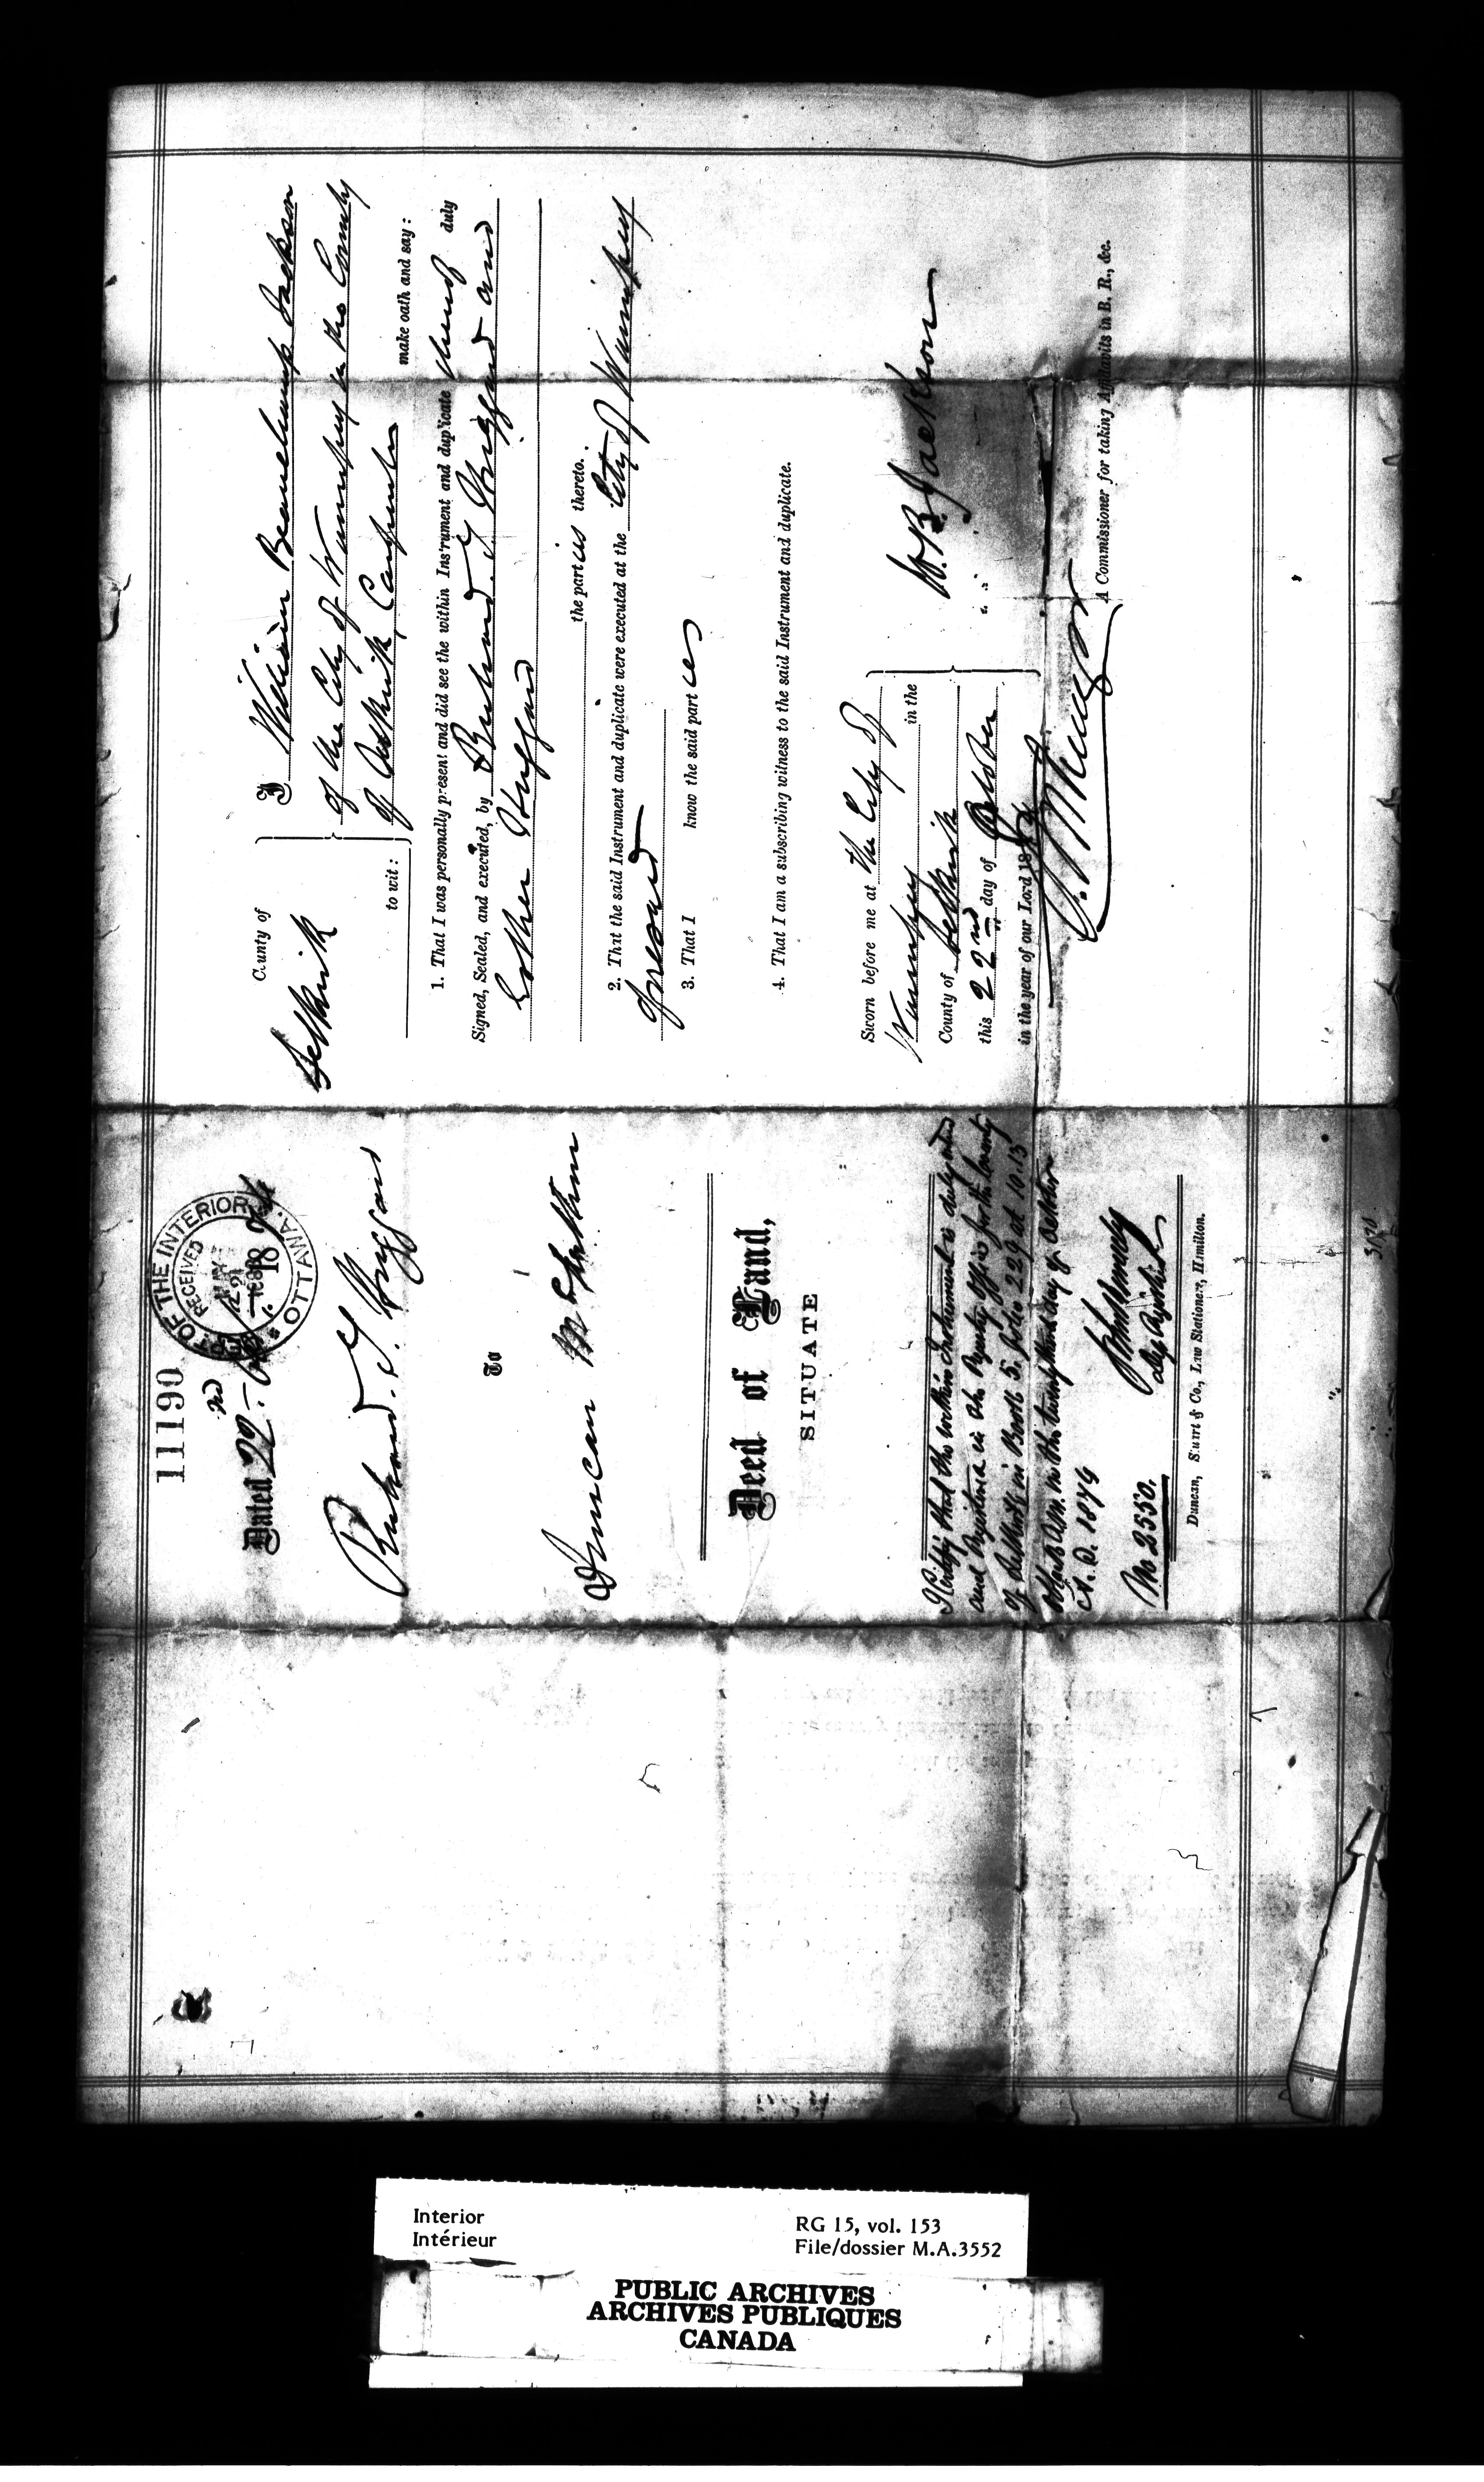 County of
Selkirk
to wit :
I William Beauchamp Jackson
of the City of Winnipeg in the County
of Selkirk Carpenter
make oath and say :
1. That I was personally present and did see the within Instrument and duplicate duly
Signed, Sealed, and executed, by Richard T. Huggard and
Esther Huggard
the parties thereto.
2. That the said Instrument and duplicate were executed at the City of Winnipeg
aforesaid
3. That I know the said parties
4. That I am a subscribing witness to the said Instrument and duplicate.
Sworn before me at the City of
Winnipeg in the
County of Selkirk
this 22nd day of October
in the year of our Lord 187
W. B. Jackson
A Commissioner for taking Affidavits in B. R., &c.
11190
DEPT OF THE INTERIOR
RECEIVED
MAY 21
OTTAWA.
Dated 22nd 18
Richard T. Huggard
To
Duncan McArthur
Deed of Land,
SITUATE
I Certify that the within Instrument is duly entered
and Registered in the Registry Office for the County
of Selkirk in Book 5. folio 229 at 10.15
o'clock A.M. on the twenty third day of October
A. D. 1874
Dep Registrar
No 2550.
Duncan, Stuart & Co., Law Stationers, Hamilton.
Interior
Intérieur
RG 15, vol. 153
File/dossier M.A.3552
PUBLIC ARCHIVES
ARCHIVES PUBLIQUES
CANADA